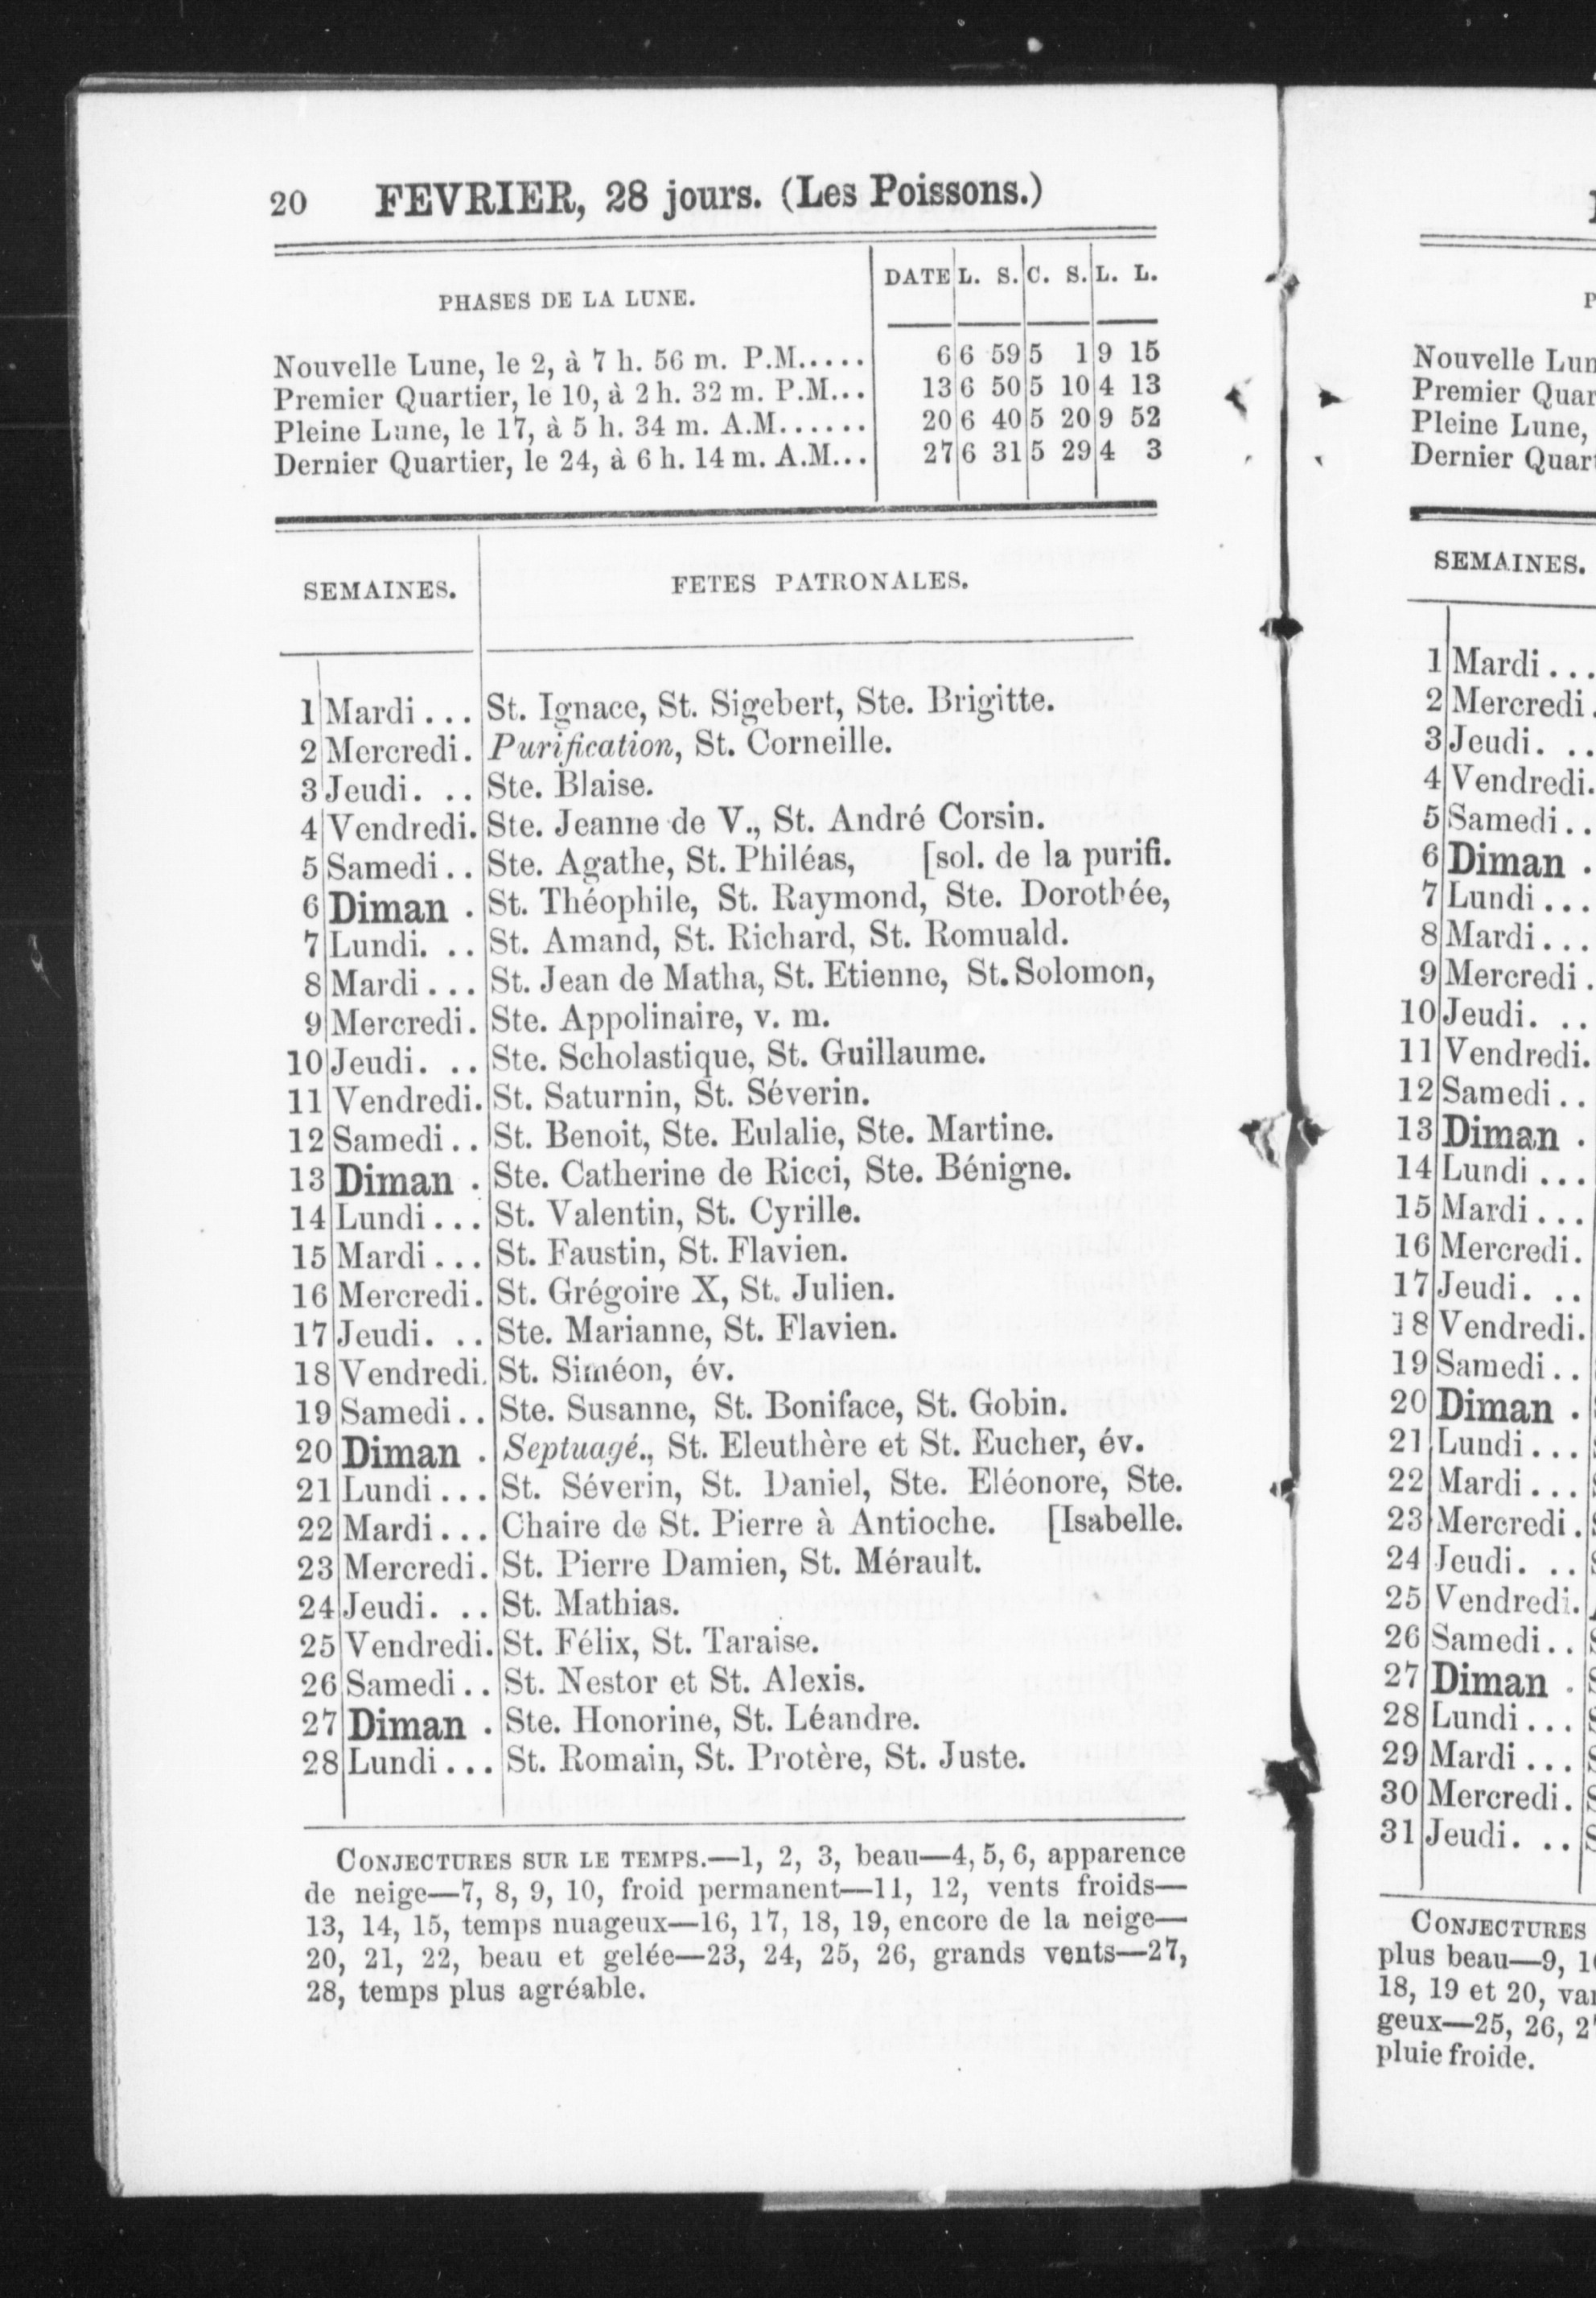 20 FEVRIER, 28 jours. (Les Poissons.)
PHASES DE LA LUNE.
DATE L. S. C. S. L. L.
Nouvelle Lune, le 2, à 7 h. 56 m. P.M..... 6 6 59 5 1 9 15
Premier Quartier, le 10, à 2 h. 32 m. P.M... 13 6 50 5 10 4 13
Pleine Lune, le 17, à 5 h. 34 m. A.M...... 20 6 40 5 20 9 52
Dernier Quartier, le 24, à 6 h. 14 m. A.M... 27 6 31 5 29 4 3
SEMAINES. FETES PATRONALES.
1 Mardi... St. Ignace, St. Sigebert, Ste. Brigitte.
2 Mercredi. Purification, St. Corneille.
3 Jeudi. .. Ste. Blaise.
4 Vendredi. Ste. Jeanne de V., St. André Corsin.
5 Samedi.. Ste. Agathe, St. Philéas, [sol. de la purifi.
6 Diman . St. Théophile, St. Raymond, Ste. Dorothée,
7 Lundi. .. St. Amand, St. Richard, St. Romuald.
8 Mardi... St. Jean de Matha, St. Etienne, St. Solomon,
9 Mercredi. Ste. Appolinaire, v. m.
10 Jeudi. .. Ste. Scholastique, St. Guillaume.
11 Vendredi. St. Saturnin, St. Séverin.
12 Samedi.. St. Benoit, Ste. Eulalie, Ste. Martine.
13 Diman . Ste. Catherine de Ricci, Ste. Bénigne.
14 Lundi... St. Valentin, St. Cyrille.
15 Mardi... St. Faustin, St. Flavien.
16 Mercredi. St. Grégoire X, St. Julien.
17 Jeudi. .. Ste. Marianne, St. Flavien.
18 Vendredi. St. Siméon, év.
19 Samedi.. Ste. Susanne, St. Boniface, St. Gobin.
20 Diman . Septuagé., St. Eleuthère et St. Eucher, év.
21 Lundi... St. Séverin, St. Daniel, Ste. Eléonore, Ste.
22 Mardi... Chaire de St. Pierre à Antioche. [Isabelle.
23 Mercredi. St. Pierre Damien, St. Mérault.
24 Jeudi. .. St. Mathias.
25 Vendredi. St. Félix, St. Taraise.
26 Samedi.. St. Nestor et St. Alexis.
27 Diman . Ste. Honorine, St. Léandre.
28 Lundi... St. Romain, St. Protère, St. Juste.
CONJECTURES SUR LE TEMPS.—1, 2, 3, beau—4, 5, 6, apparence
de neige—7, 8, 9, 10, froid permanent—11, 12, vents froids—
13, 14, 15, temps nuageux—16, 17, 18, 19, encore de la neige—
20, 21, 22, beau et gelée—23, 24, 25, 26, grands vents—27,
28, temps plus agréable.
Nouvelle
Premier
Pleine Lune,
Dernier
SEMAINES.
1 Mardi...
2 Mercredi.
3 Jeudi. ..
4 Vendredi.
5 Samedi..
6 Diman .
7 Lundi...
8 Mardi...
9 Mercredi.
10 Jeudi. ..
11 Vendredi.
12 Samedi..
13 Diman .
14 Lundi...
15 Mardi...
16 Mercredi.
17 Jeudi. ..
18 Vendredi.
19 Samedi..
20 Diman .
21 Lundi...
22 Mardi...
23 Mercredi.
24 Jeudi. ..
25 Vendredi.
26 Samedi..
27 Diman .
28 Lundi...
29 Mardi...
30 Mercredi.
31 Jeudi. ..
CONJECTURES
plus beau—9,
18, 19 et 20,
geux—25, 26,
pluie froide.